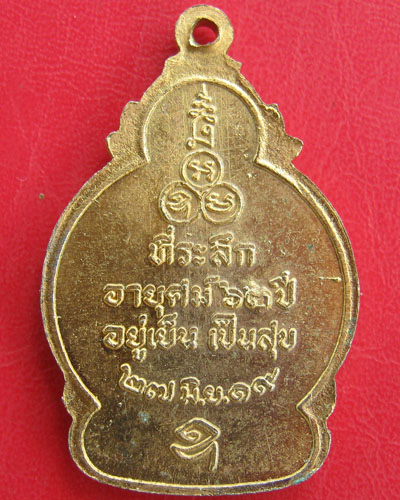 ที่ระลึก
อายุครบ ๖๓ ปี
อยู่เย็น เป็นสุข
๒๗ มิ.ย. ๑๙